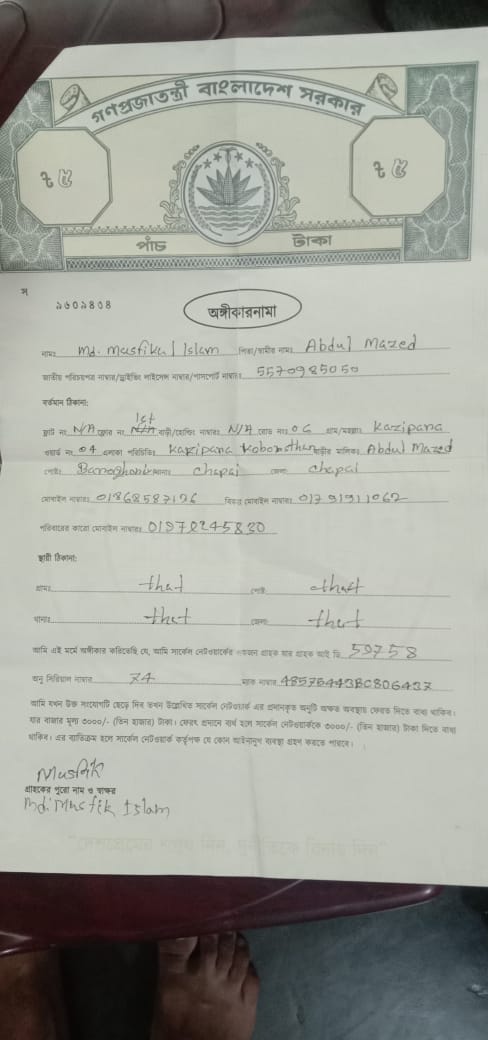 গণপ্রজাতন্ত্রী বাংলাদেশ সরকার
৳ ৫ ৳ ৫
পাঁচ টাকা
স
১৬০১৪০৪
অঙ্গীকারনামা
নামঃ Md. Musfikul Islam পিতা/স্বামীর নামঃ Abdul Mazed
জাতীয় পরিচয়পত্র নাম্বার/ড্রাইভিং লাইসেন্স নাম্বার/পাসপোর্ট নাম্বারঃ 5570985050
বর্তমান ঠিকানা:
ফ্লাট নং N/A ফ্লোর নং 1st বাড়ী/হোল্ডিং নাম্বারঃ N/A রোড নংঃ 06 গ্রাম/মহল্লাঃ Kazipara
ওয়ার্ড নং 04 এলাকা পরিচিতিঃ Kazipara Koborsthan বাড়ীর মালিকঃ Abdul Mazed
পোষ্টঃ থানাঃ Chapai জেলাঃ Chapai
মোবাইল নাম্বারঃ 01868587126 বিকল্প মোবাইল নাম্বারঃ 01791911062
পরিবারের কারো মোবাইল নাম্বারঃ 01970245830
স্থায়ী ঠিকানা:
গ্রামঃ that পোষ্টঃ that
থানাঃ that জেলাঃ that
আমি এই মর্মে অঙ্গীকার করিতেছি যে, আমি সার্কেল নেটওয়ার্কের একজন গ্রাহক যার গ্রাহক আই ডি 59758
অনু সিরিয়াল নাম্বার 74 ম্যাক নাম্বার 48575443BC806437
আমি যখন উক্ত সংযোগটি ছেড়ে দিব তখন উল্লেখিত সার্কেল নেটওয়ার্ক এর প্রদানকৃত অনুটি অক্ষত অবস্থায় ফেরত দিতে বাধ্য থাকিব।
যার বাজার মূল্য ৩০০০/- (তিন হাজার) টাকা। ফেরৎ প্রদানে ব্যর্থ হলে সার্কেল নেটওয়ার্ককে ৩০০০/- (তিন হাজার) টাকা দিতে বাধ্য
থাকিব। এর ব্যতিক্রম হলে সার্কেল নেটওয়ার্ক কর্তৃপক্ষ যে কোন আইনানুগ ব্যবস্থা গ্রহণ করতে পারবে।
Musfik
গ্রাহকের পুরো নাম ও স্বাক্ষর
Md. Musfik Islam